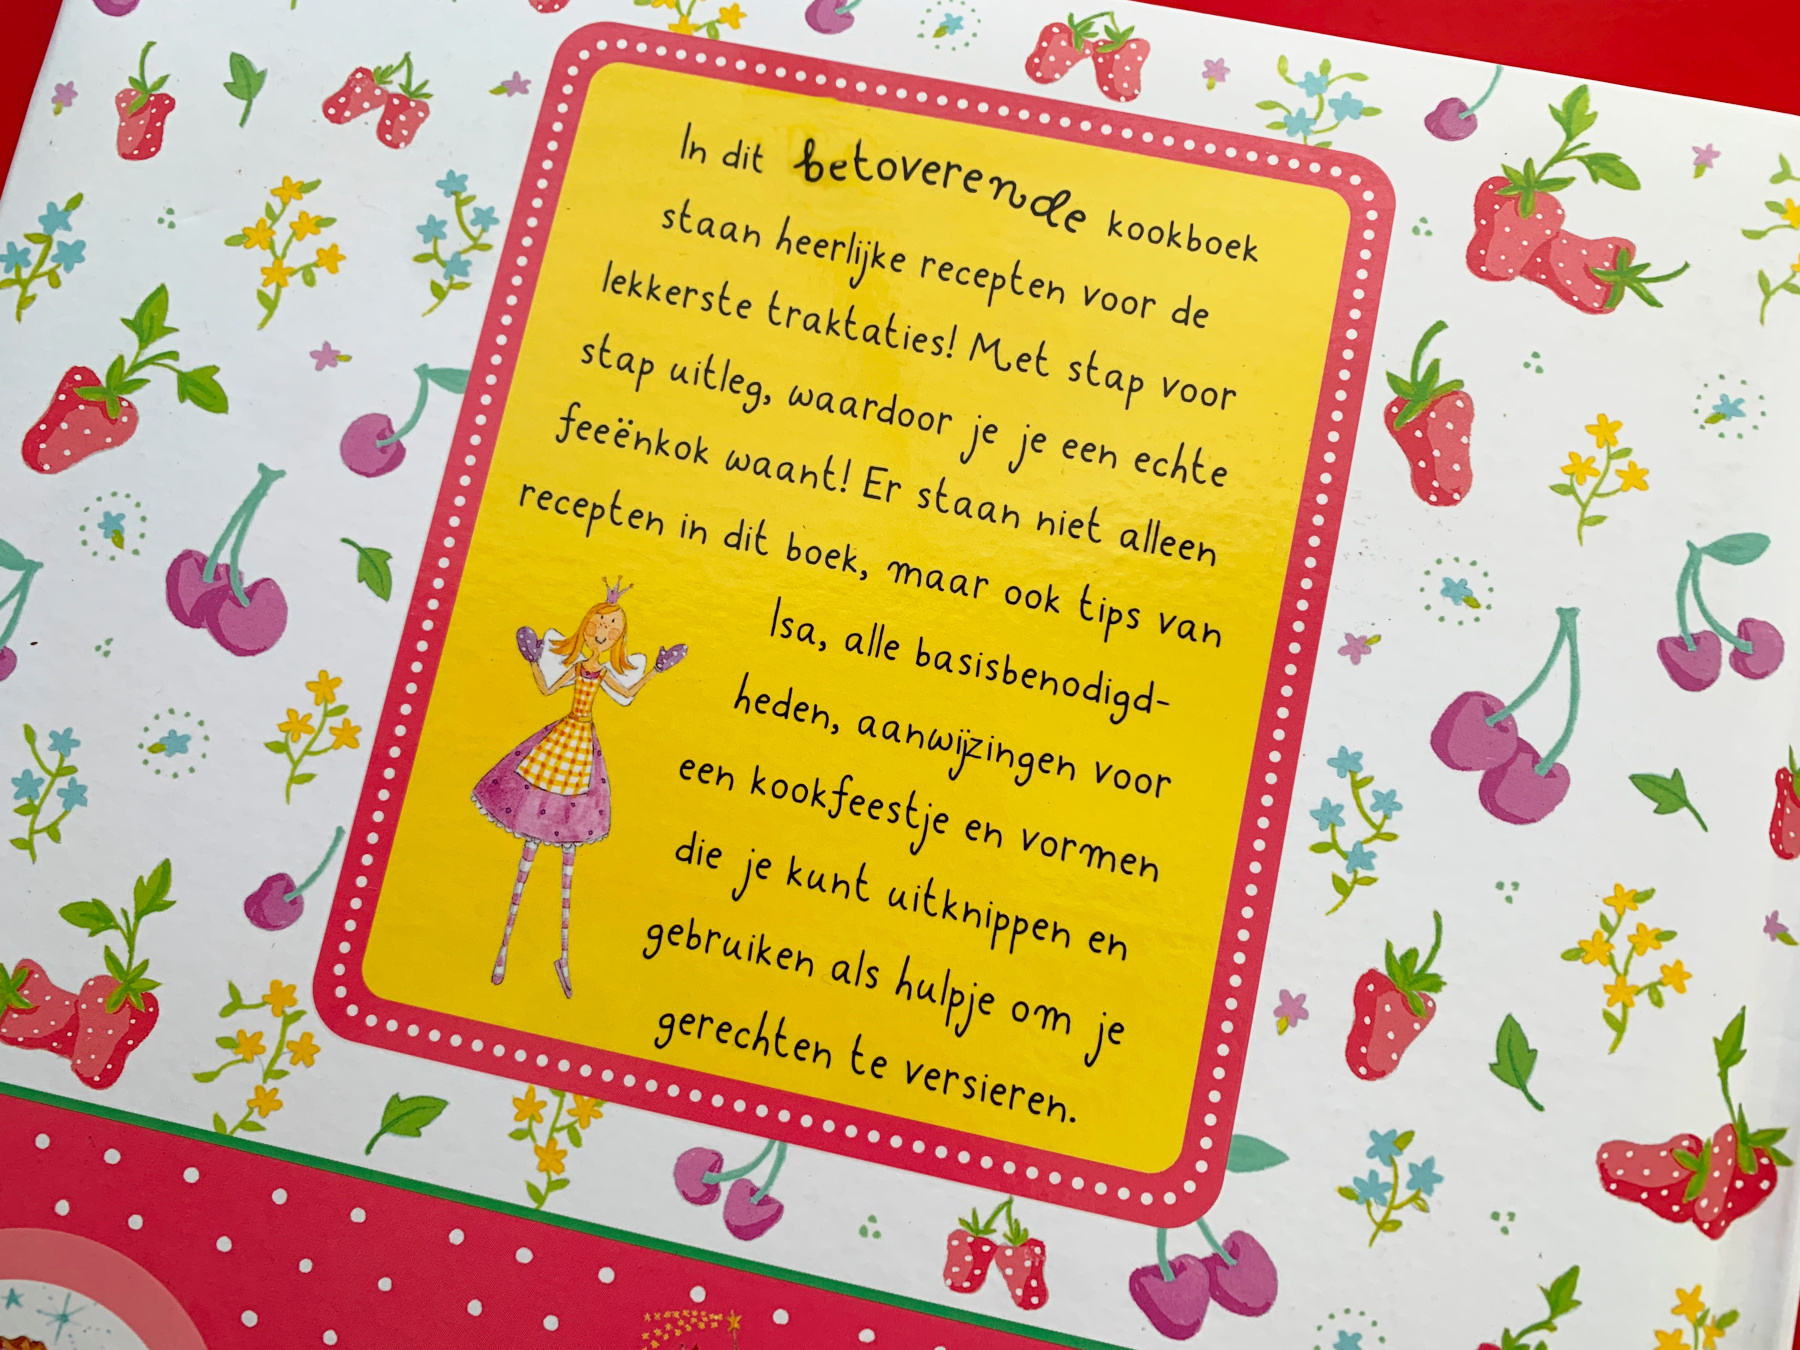 In dit betoverende kookboek
staan heerlijke recepten voor de
lekkerste traktaties! Met stap voor
stap uitleg, waardoor je je een echte
feeënkok waant! Er staan niet alleen
recepten in dit boek, maar ook tips van
Isa, alle basisbenodigd-
heden, aanwijzingen voor
een kookfeestje en vormen
die je kunt uitknippen en
gebruiken als hulpje om je
gerechten te versieren.